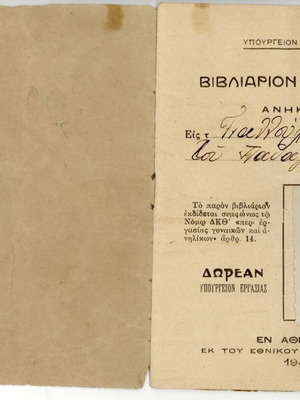 ΥΠΟΥΡΓΕΙΟΝ
ΒΙΒΛΙΑΡΙΟΝ
ΑΝΗΚ
Εἰς τ
τοῦ
Τὸ παρὸν βιβλιάριον
ἐκδίδεται συμφώνως τῷ
Νόμῳ ΔΚΘ' «περὶ ἐρ-
γασίας γυναικῶν καὶ ἀ-
νηλίκων» ἄρθρ. 14.
ΔΩΡΕΑΝ
ΥΠΟΥΡΓΕΙΟΝ ΕΡΓΑΣΙΑΣ
ΕΝ ΑΘΗ
ΕΚ ΤΟΥ ΕΘΝΙΚΟΥ
19